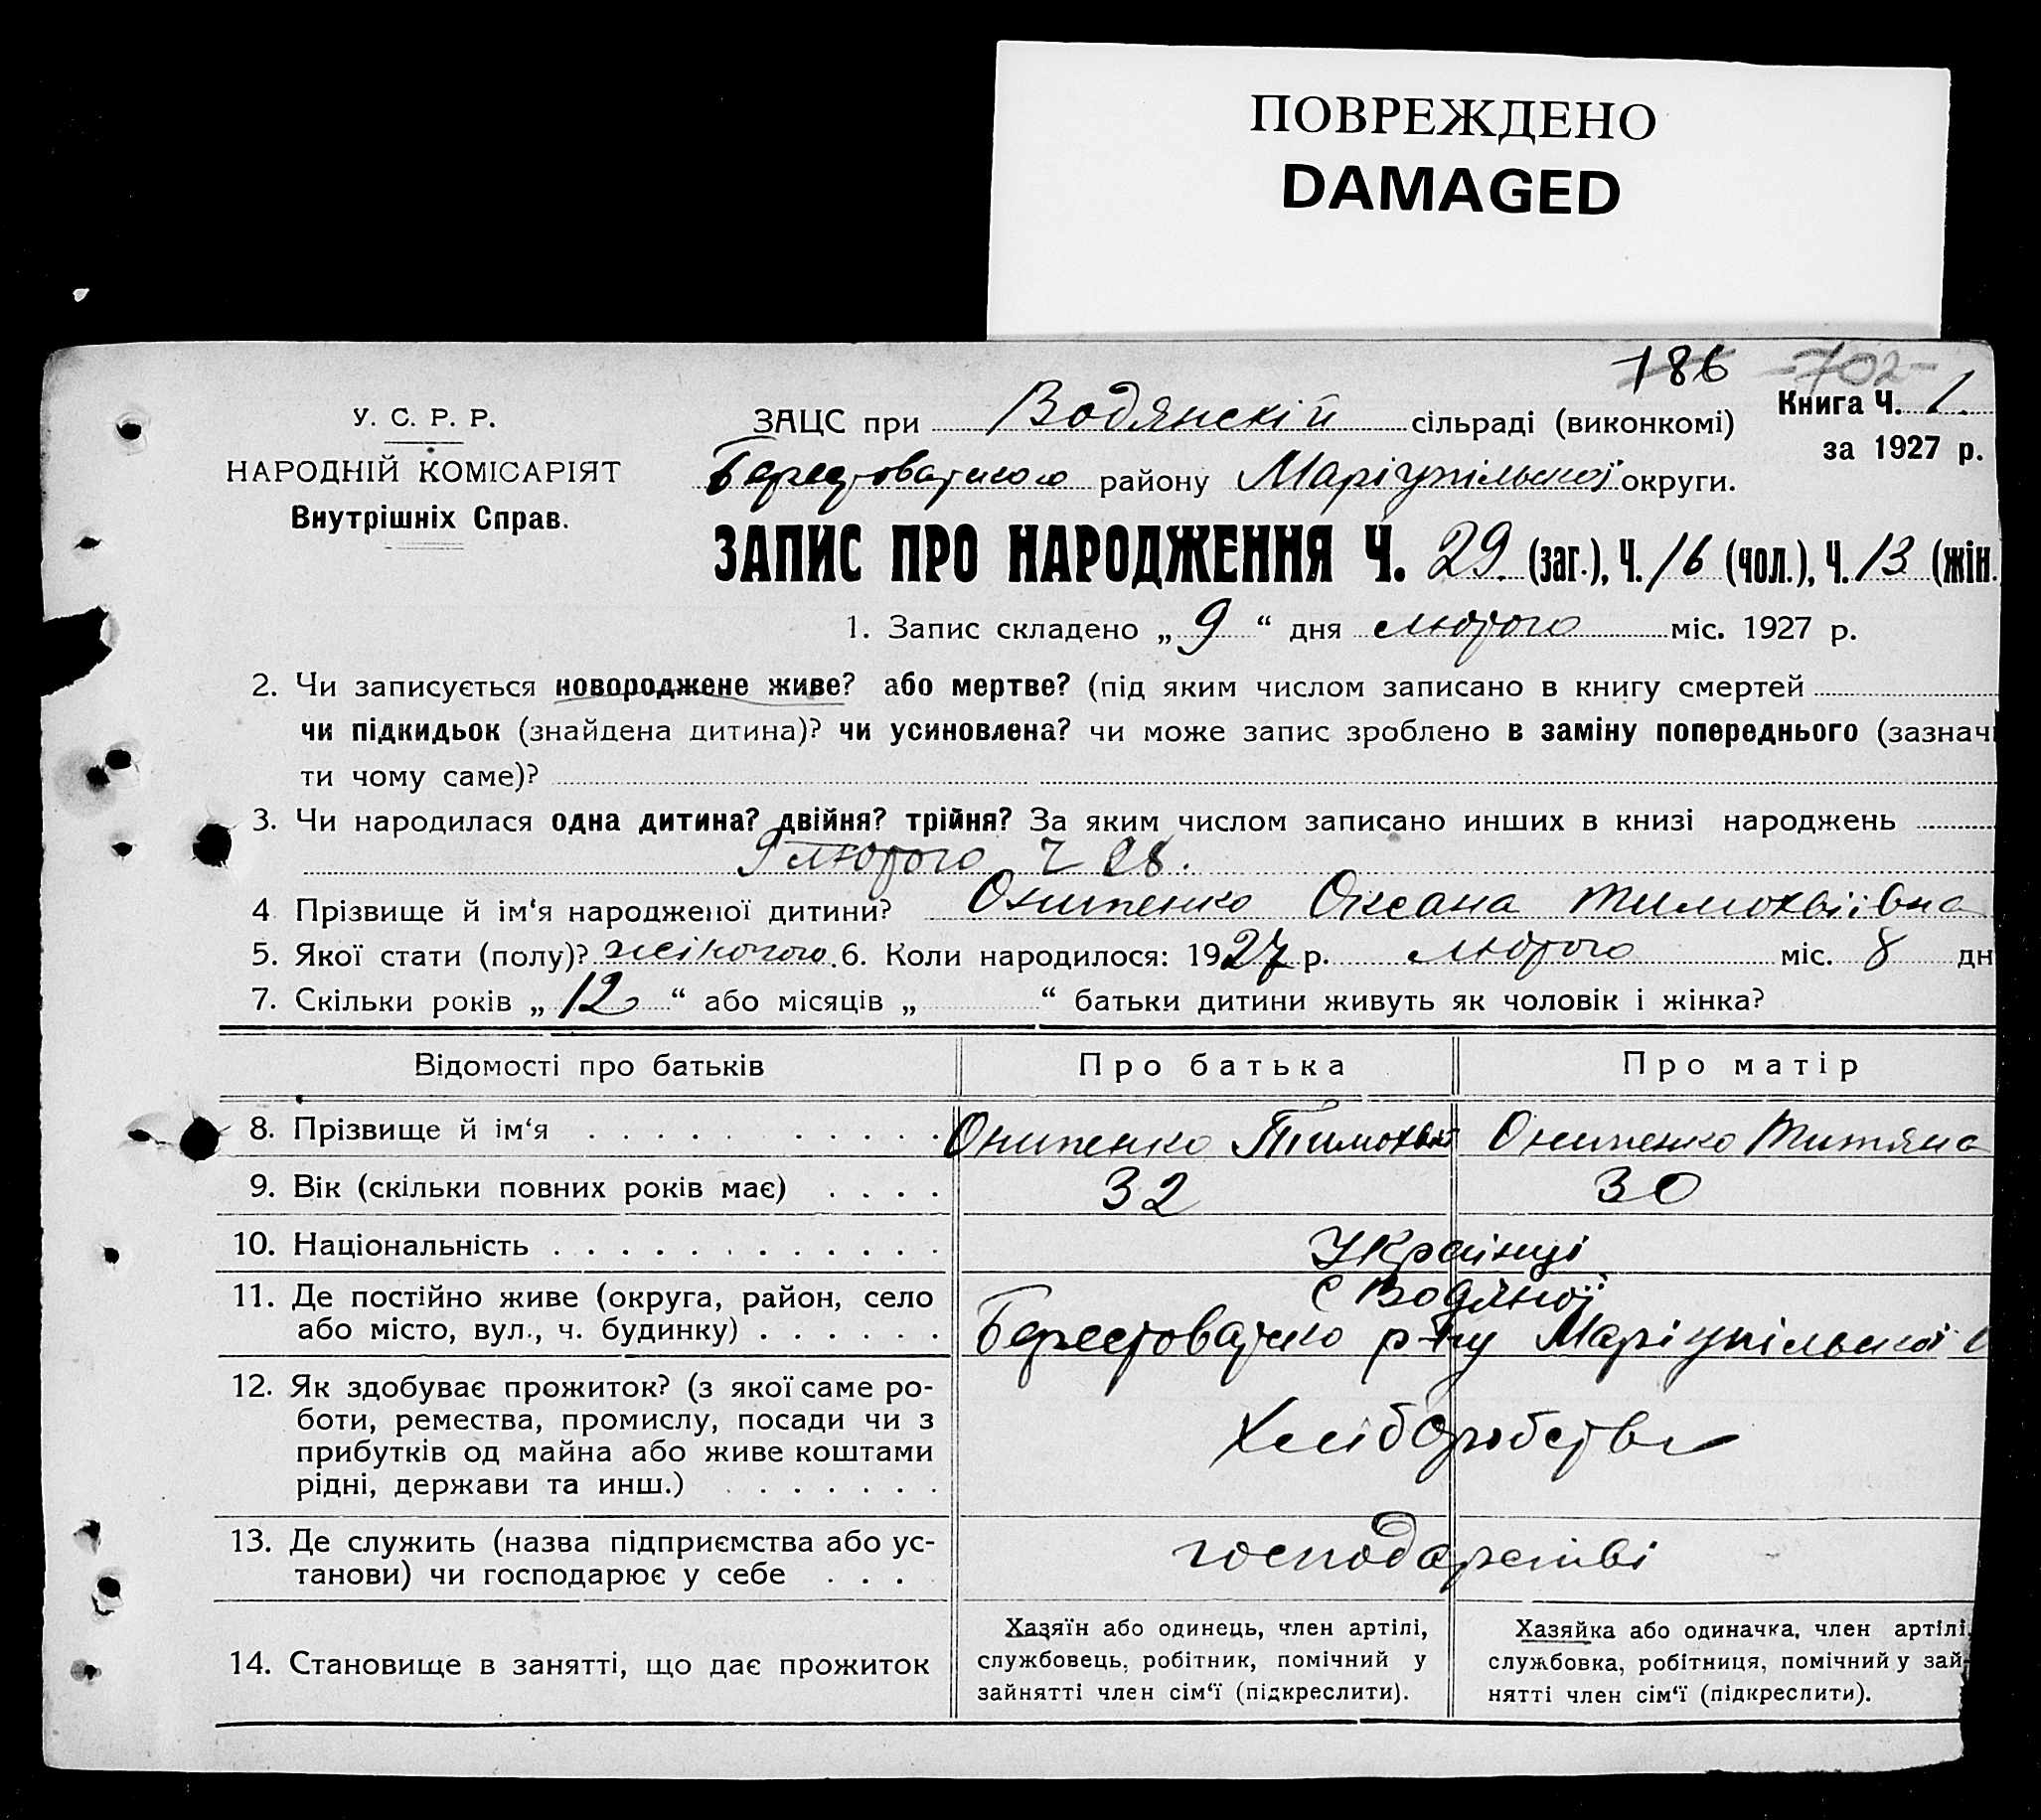 ПОВРЕЖДЕНО
DAMAGED
186 702
У. С. Р. Р.
НАРОДНІЙ КОМІСАРІЯТ
Внутрішніх Справ.
Книга Ч. 1.
за 1927 р.
ЗАЦС при Водянскій сільраді (виконкомі)
Берестоватсково району Маріупільської округи.
ЗАПИС ПРО НАРОДЖЕННЯ Ч. 29 (заг.), Ч. 16 (чол.), Ч. 13 (жін.
1. Запис складено „ 9 “ дня лютого міс. 1927 р.
2. Чи записується новороджене живе? або мертве? (під яким числом записано в книгу смертей
чи підкидьок (знайдена дитина)? чи усиновлена? чи може запис зроблено в заміну попереднього (зазначи
ти чому саме)?
3. Чи народилася одна дитина? двійня? трійня? За яким числом записано инших в книзі народжень
9 лютого Ч 28.
4 Прізвище й ім‘я народженої дитини? Онипенко Оксана Тимохвіївна
5. Якої стати (полу)? жіночого. 6. Коли народилося: 1927 р. лютого міс. 8 дн
7. Скільки років „ 12 “ або місяців „ “ батьки дитини живуть як чоловік і жінка?
Відомості про батьків Про батька Про матір
8. Прізвище й ім‘я Онипенко Тимохвій Онипенко Титяна
9. Вік (скільки повних років має) 32 30
10. Національність Українці
11. Де постійно живе (округа, район, село
або місто, вул., ч. будинку)
с Водяної
Берестоватско р-ну Маріупільської о
12. Як здобуває прожиток? (з якої саме ро-
боти, ремества, промислу, посади чи з
прибутків од майна або живе коштами
рідні, держави та инш.)
Хліборобства
13. Де служить (назва підприємства або ус-
танови) чи господарює у себе
господарстві
14. Становище в занятті, що дає прожиток
Хазяїн або одинець, член артілі,
службовець, робітник, помічний у
зайнятті член сім‘ї (підкреслити).
Хазяйка або одиначка, член артілі,
службовка, робітниця, помічний у зай-
нятті член сім‘ї (підкреслити).